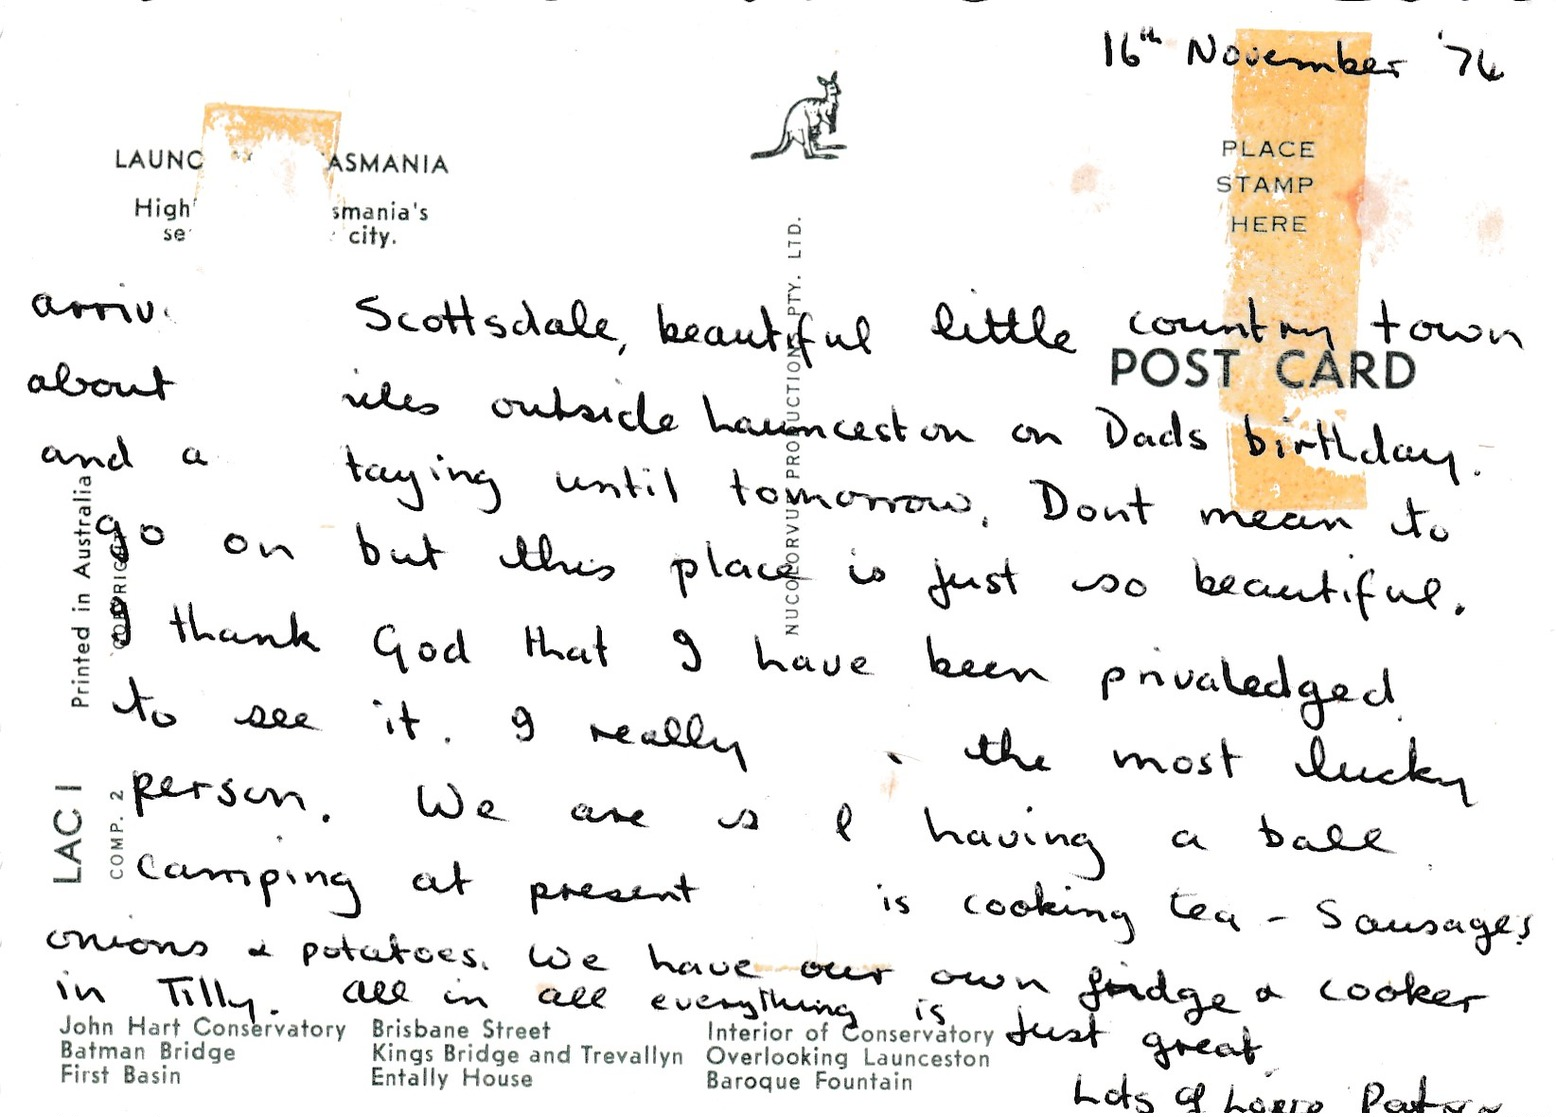 16th November '74
LAUNC ASMANIA
High smania's
se city.
PLACE
STAMP
HERE
POST CARD
arriv Scottsdale, beautiful little country town
about iles outside Launceston on Dads birthday.
and a taying until tomorrow. Dont mean to
go on but this place is just so beautiful.
I thank God that I have been privaledged
to see it. I really the most lucky
person. We are s l having a ball
camping at present is cooking tea - Sausages
onions & potatoes. We have our own fridge & cooker
in Tilly. All in all everything is just great.
Lots of love
Printed in Australia
COPYRIGHT
LAC 1
COMP. 2
NUCOLORVUE PRODUCTIONS PTY. LTD.
John Hart Conservatory Brisbane Street Interior of Conservatory
Batman Bridge Kings Bridge and Trevallyn Overlooking Launceston
First Basin Entally House Baroque Fountain